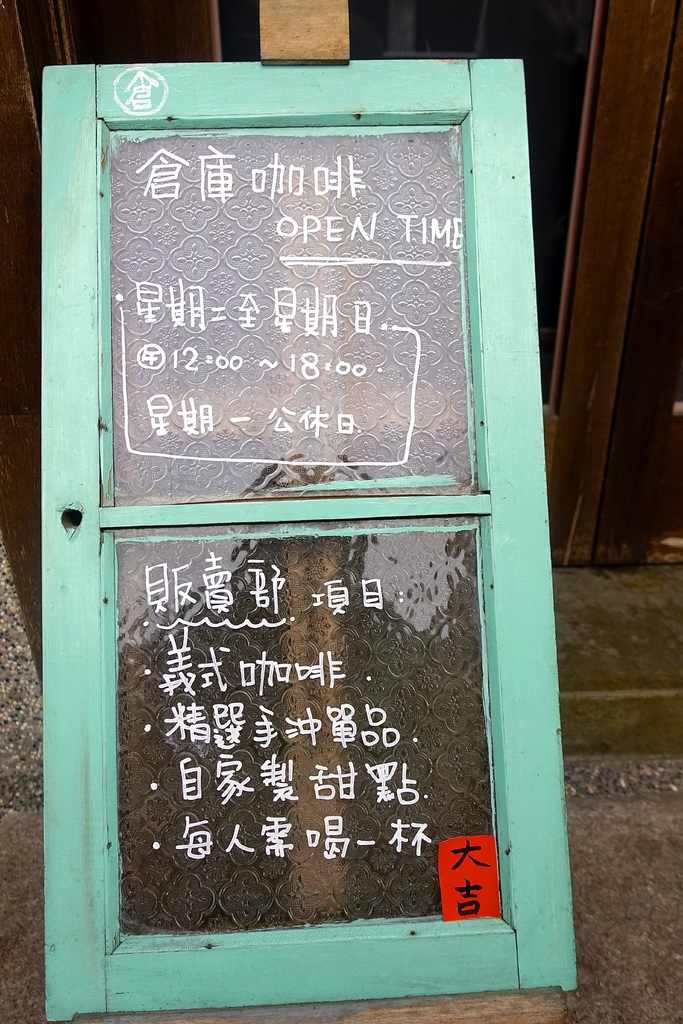 倉
倉庫咖啡
OPEN TIME
星期二全星期日.
㊉12:00~18:00.
星期一公休日.
販賣部 項目:
·義式咖啡.
·精選手沖單品.
·自家製甜點.
·每人需喝一杯
大
吉